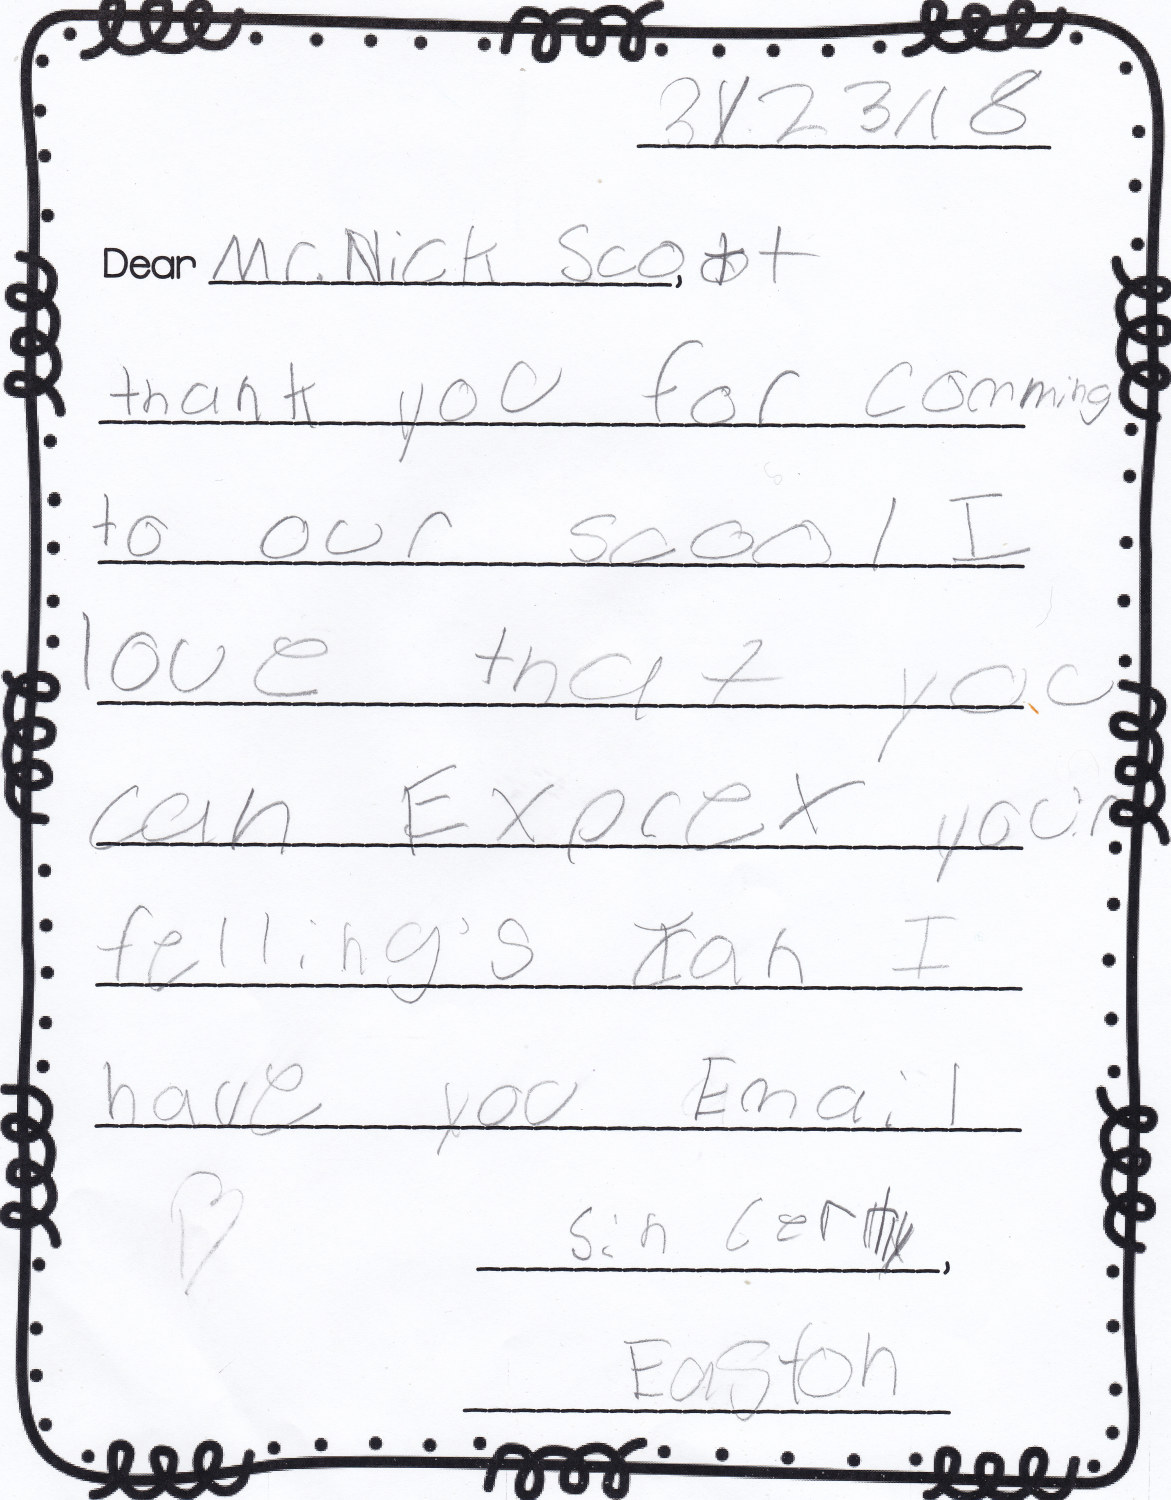 3/23/18
Dear Mr. Nick Scott,
thank you for comming
to our scool I
love that you
can Exprex your
felling's Can I
have you Email
sin cerly,
Easton